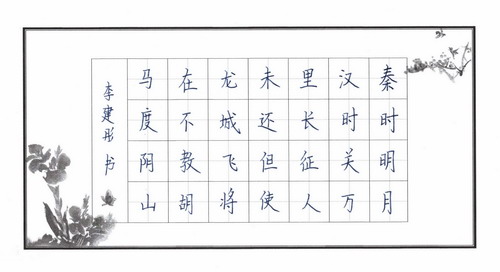 秦时明月
汉时关万
里长征人
未还但使
龙城飞将
在不教胡
马度阴山
李建彤书